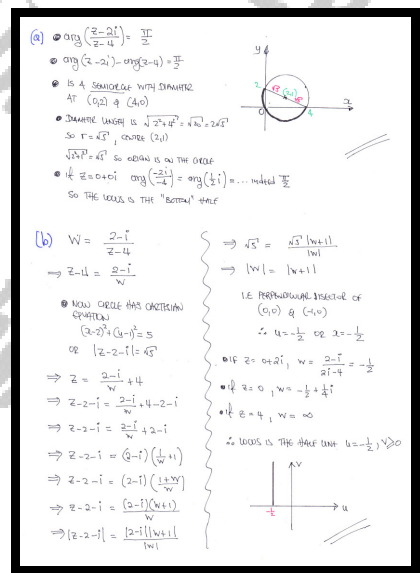 (a) • arg((z-2i)/(z-4)) = π/2
• arg(z-2i) - arg(z-4) = π/2
• IS A SEMICIRCLE WITH DIAMETER
AT (0,2) & (4,0)
• DIAMETER LENGTH IS √(2²+4²) = √20 = 2√5
SO r = √5, CENTRE (2,1)
√(2²+1²) = √5 SO ORIGIN IS ON THE CIRCLE
• If z = 0+0i arg(-2i/-4) = arg(½i) = ... indeed π/2
SO THE LOCUS IS THE "BOTTOM" HALF
y
2
√5
(2,1)
√5
0
4
x
(b) W = (2-i)/(z-4)
⇒ z-4 = (2-i)/w
• NOW CIRCLE HAS CARTESIAN
EQUATION
(x-2)²+(y-1)² = 5
OR |z-2-i| = √5
⇒ z = (2-i)/w + 4
⇒ z-2-i = (2-i)/w + 4-2-i
⇒ z-2-i = (2-i)/w + 2-i
⇒ z-2-i = (2-i)(1/w + 1)
⇒ z-2-i = (2-i)((1+w)/w)
⇒ z-2-i = (2-i)(w+1)/w
⇒ |z-2-i| = |2-i||w+1|/|w|
⇒ √5 = √5|w+1|/|w|
⇒ |w| = |w+1|
I.E PERPENDICULAR BISECTOR OF
(0,0) & (-1,0)
∴ u = -½ OR x = -½
• IF z = 0+2i, w = (2-i)/(2i-4) = -½
• if z = 0, w = -½ + ¼i
• if z = 4, w = ∞
∴ LOCUS IS THE HALF LINE u = -½, v ≥ 0
v
-½
u